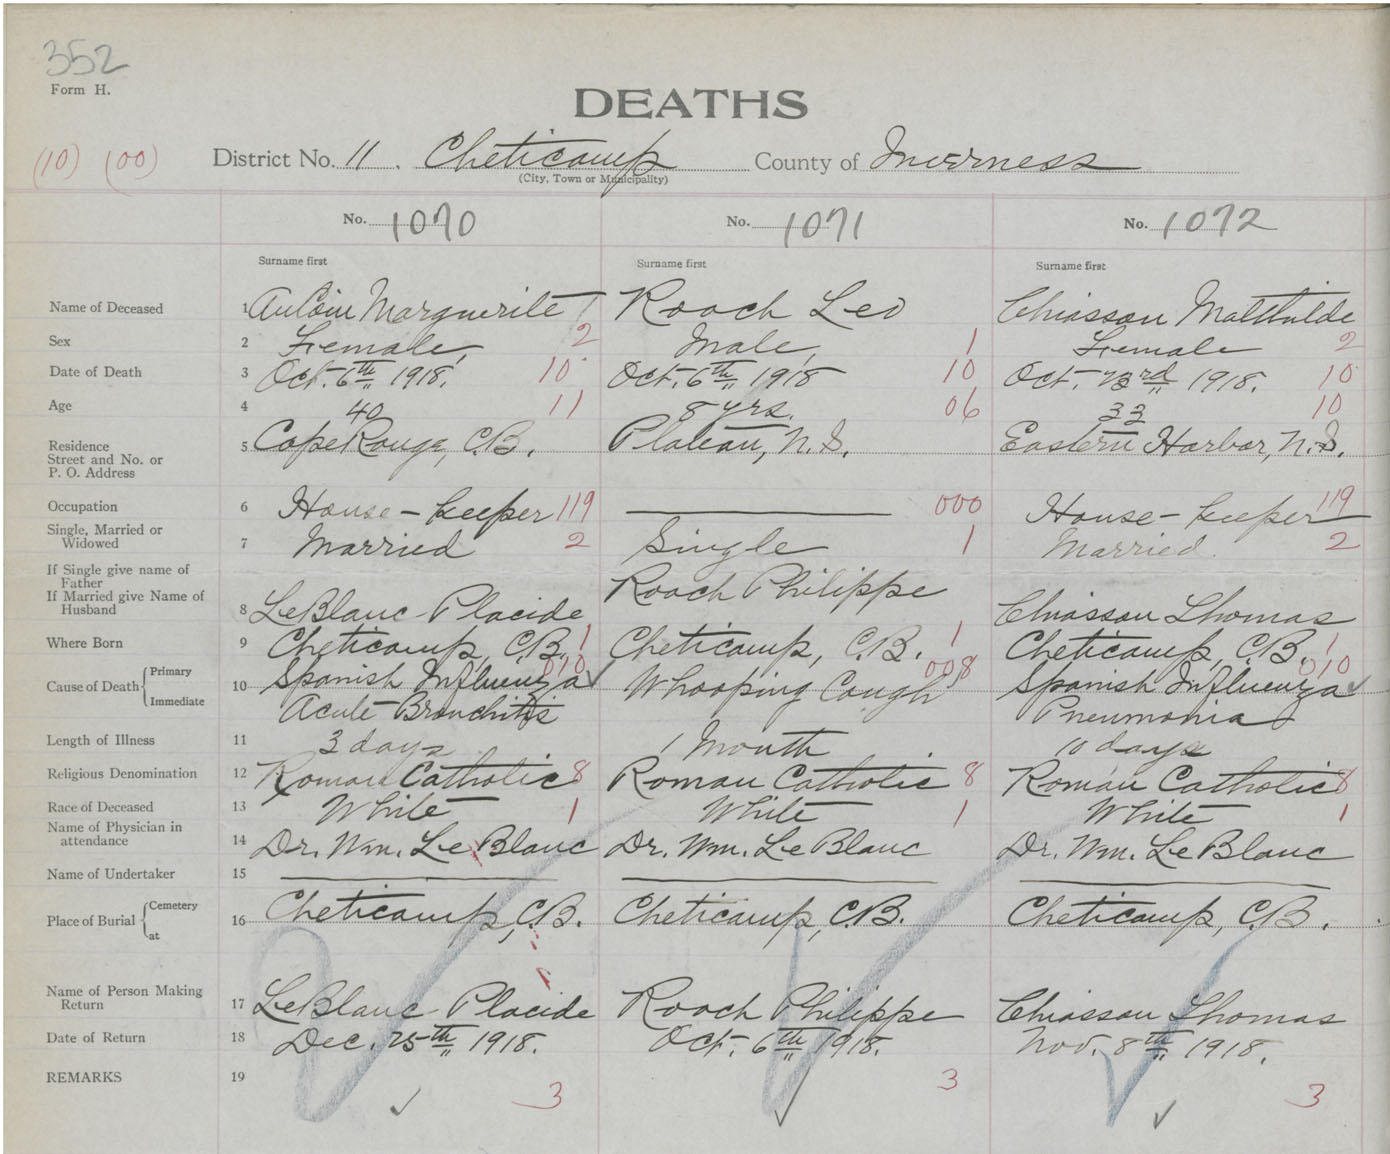 352
Form H.
DEATHS
(10) (00) District No. 11. Cheticamp County of Inverness
(City, Town or Municipality)
No. 1070 No. 1071 No. 1072
Surname first Surname first Surname first
Name of Deceased 1 AuCoin Marguerite Roach Leo Chiasson Mathilde
Sex 2 Female, 2 Male, 1 Female 2
Date of Death 3 Oct. 6th 1918. 10 Oct. 6th 1918 10 Oct. 23rd 1918. 10
Age 4 40 11 8 yrs. 06 33 10
Residence
Street and No. or
P. O. Address 5 Cape Rouge, C.B. Plateau, N.S. Eastern Harbor, N.S.
Occupation 6 House-keeper 119 000 House-keeper 119
Single, Married or
Widowed 7 Married 2 Single 1 Married 2
If Single give name of
Father Roach Philippe
If Married give Name of
Husband 8 LeBlanc Placide Chiasson Thomas
Where Born 9 Cheticamp, C.B. 1 Cheticamp, C.B. 1 Cheticamp, C.B. 1
010 008 010
Cause of Death { Primary
Immediate 10 Spanish Influenza Whooping Cough Spanish Influenza
Acute Bronchitis Pneumonia
Length of Illness 11 3 days 1 Month 10 days
Religious Denomination 12 Roman Catholic 8 Roman Catholic 8 Roman Catholic 8
Race of Deceased 13 White 1 White 1 White 1
Name of Physician in
attendance 14 Dr. Wm. LeBlanc Dr. Wm. LeBlanc Dr. Wm. LeBlanc
Name of Undertaker 15
Place of Burial { Cemetery
at 16 Cheticamp, C.B. Cheticamp, C.B. Cheticamp, C.B.
Name of Person Making
Return 17 LeBlanc Placide Roach Philippe Chiasson Thomas
Date of Return 18 Dec. 25th 1918. Oct. 6th 1918. Nov. 8th 1918.
REMARKS 19
3 3 3